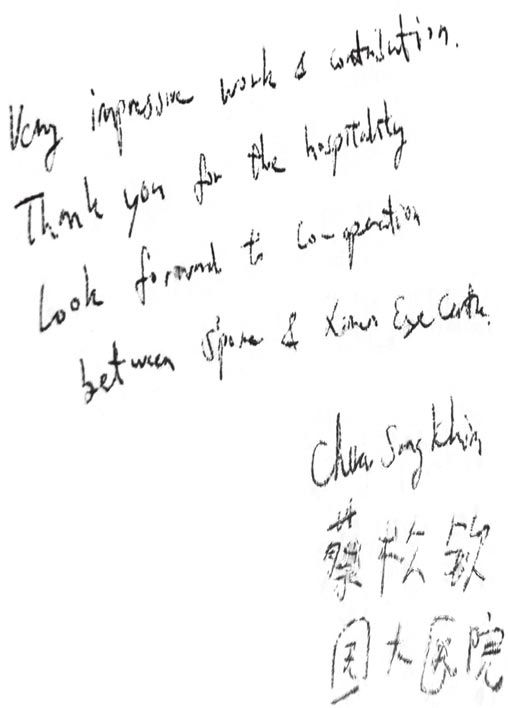 Very impressive work & contribution.
Thank you for the hospitality
Look forward to co-operation
between S'pore & Xiamen Eye Centre.
Chua Song Khim
蔡松钦
国大医院